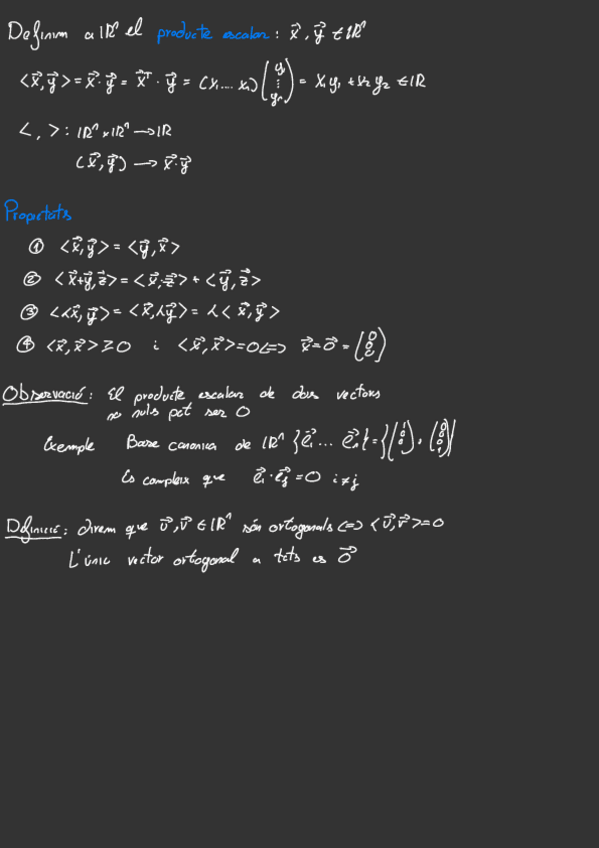 Definim a ℝⁿ el producte escalar: x⃗, y⃗ ∈ ℝⁿ
<x⃗, y⃗> = x⃗ · y⃗ = x⃗ᵀ · y⃗ = (x₁ ... xₙ) (y₁ ⋮ yₙ) = x₁y₁ + x₂y₂ ∈ ℝ
< , > : ℝⁿ × ℝⁿ → ℝ
(x⃗, y⃗) → x⃗·y⃗
Propietats
① <x⃗, y⃗> = <y⃗, x⃗>
② <x⃗+y⃗, z⃗> = <x⃗, z⃗> + <y⃗, z⃗>
③ <λx⃗, y⃗> = <x⃗, λy⃗> = λ<x⃗, y⃗>
④ <x⃗, x⃗> ≥ 0 i <x⃗, x⃗> = 0 <=> x⃗ = 0⃗ = (0 0 0)
Observació: El producte escalar de dos vectors
no nuls pot ser 0
Exemple Base canonica de ℝⁿ {e⃗₁ ... e⃗ₙ} = {(1 0 0), (0 0 1)}
Es compleix que e⃗ᵢ · e⃗ⱼ = 0 i ≠ j
Definició: direm que u⃗, v⃗ ∈ ℝⁿ són ortogonals <=> <u⃗, v⃗> = 0
L'únic vector ortogonal a tots es 0⃗